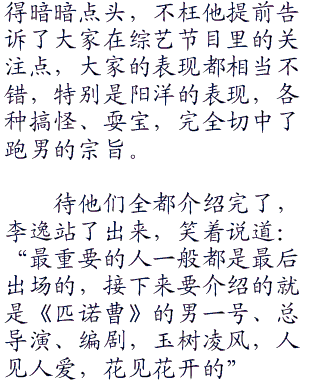 得暗暗点头，不枉他提前告
诉了大家在综艺节目里的关
注点，大家的表现都相当不
错，特别是阳洋的表现，各
种搞怪、耍宝，完全切中了
跑男的宗旨。
待他们全都介绍完了，
李逸站了出来，笑着说道：
“最重要的人一般都是最后
出场的，接下来要介绍的就
是《匹诺曹》的男一号、总
导演、编剧，玉树凌风，人
见人爱，花见花开的”